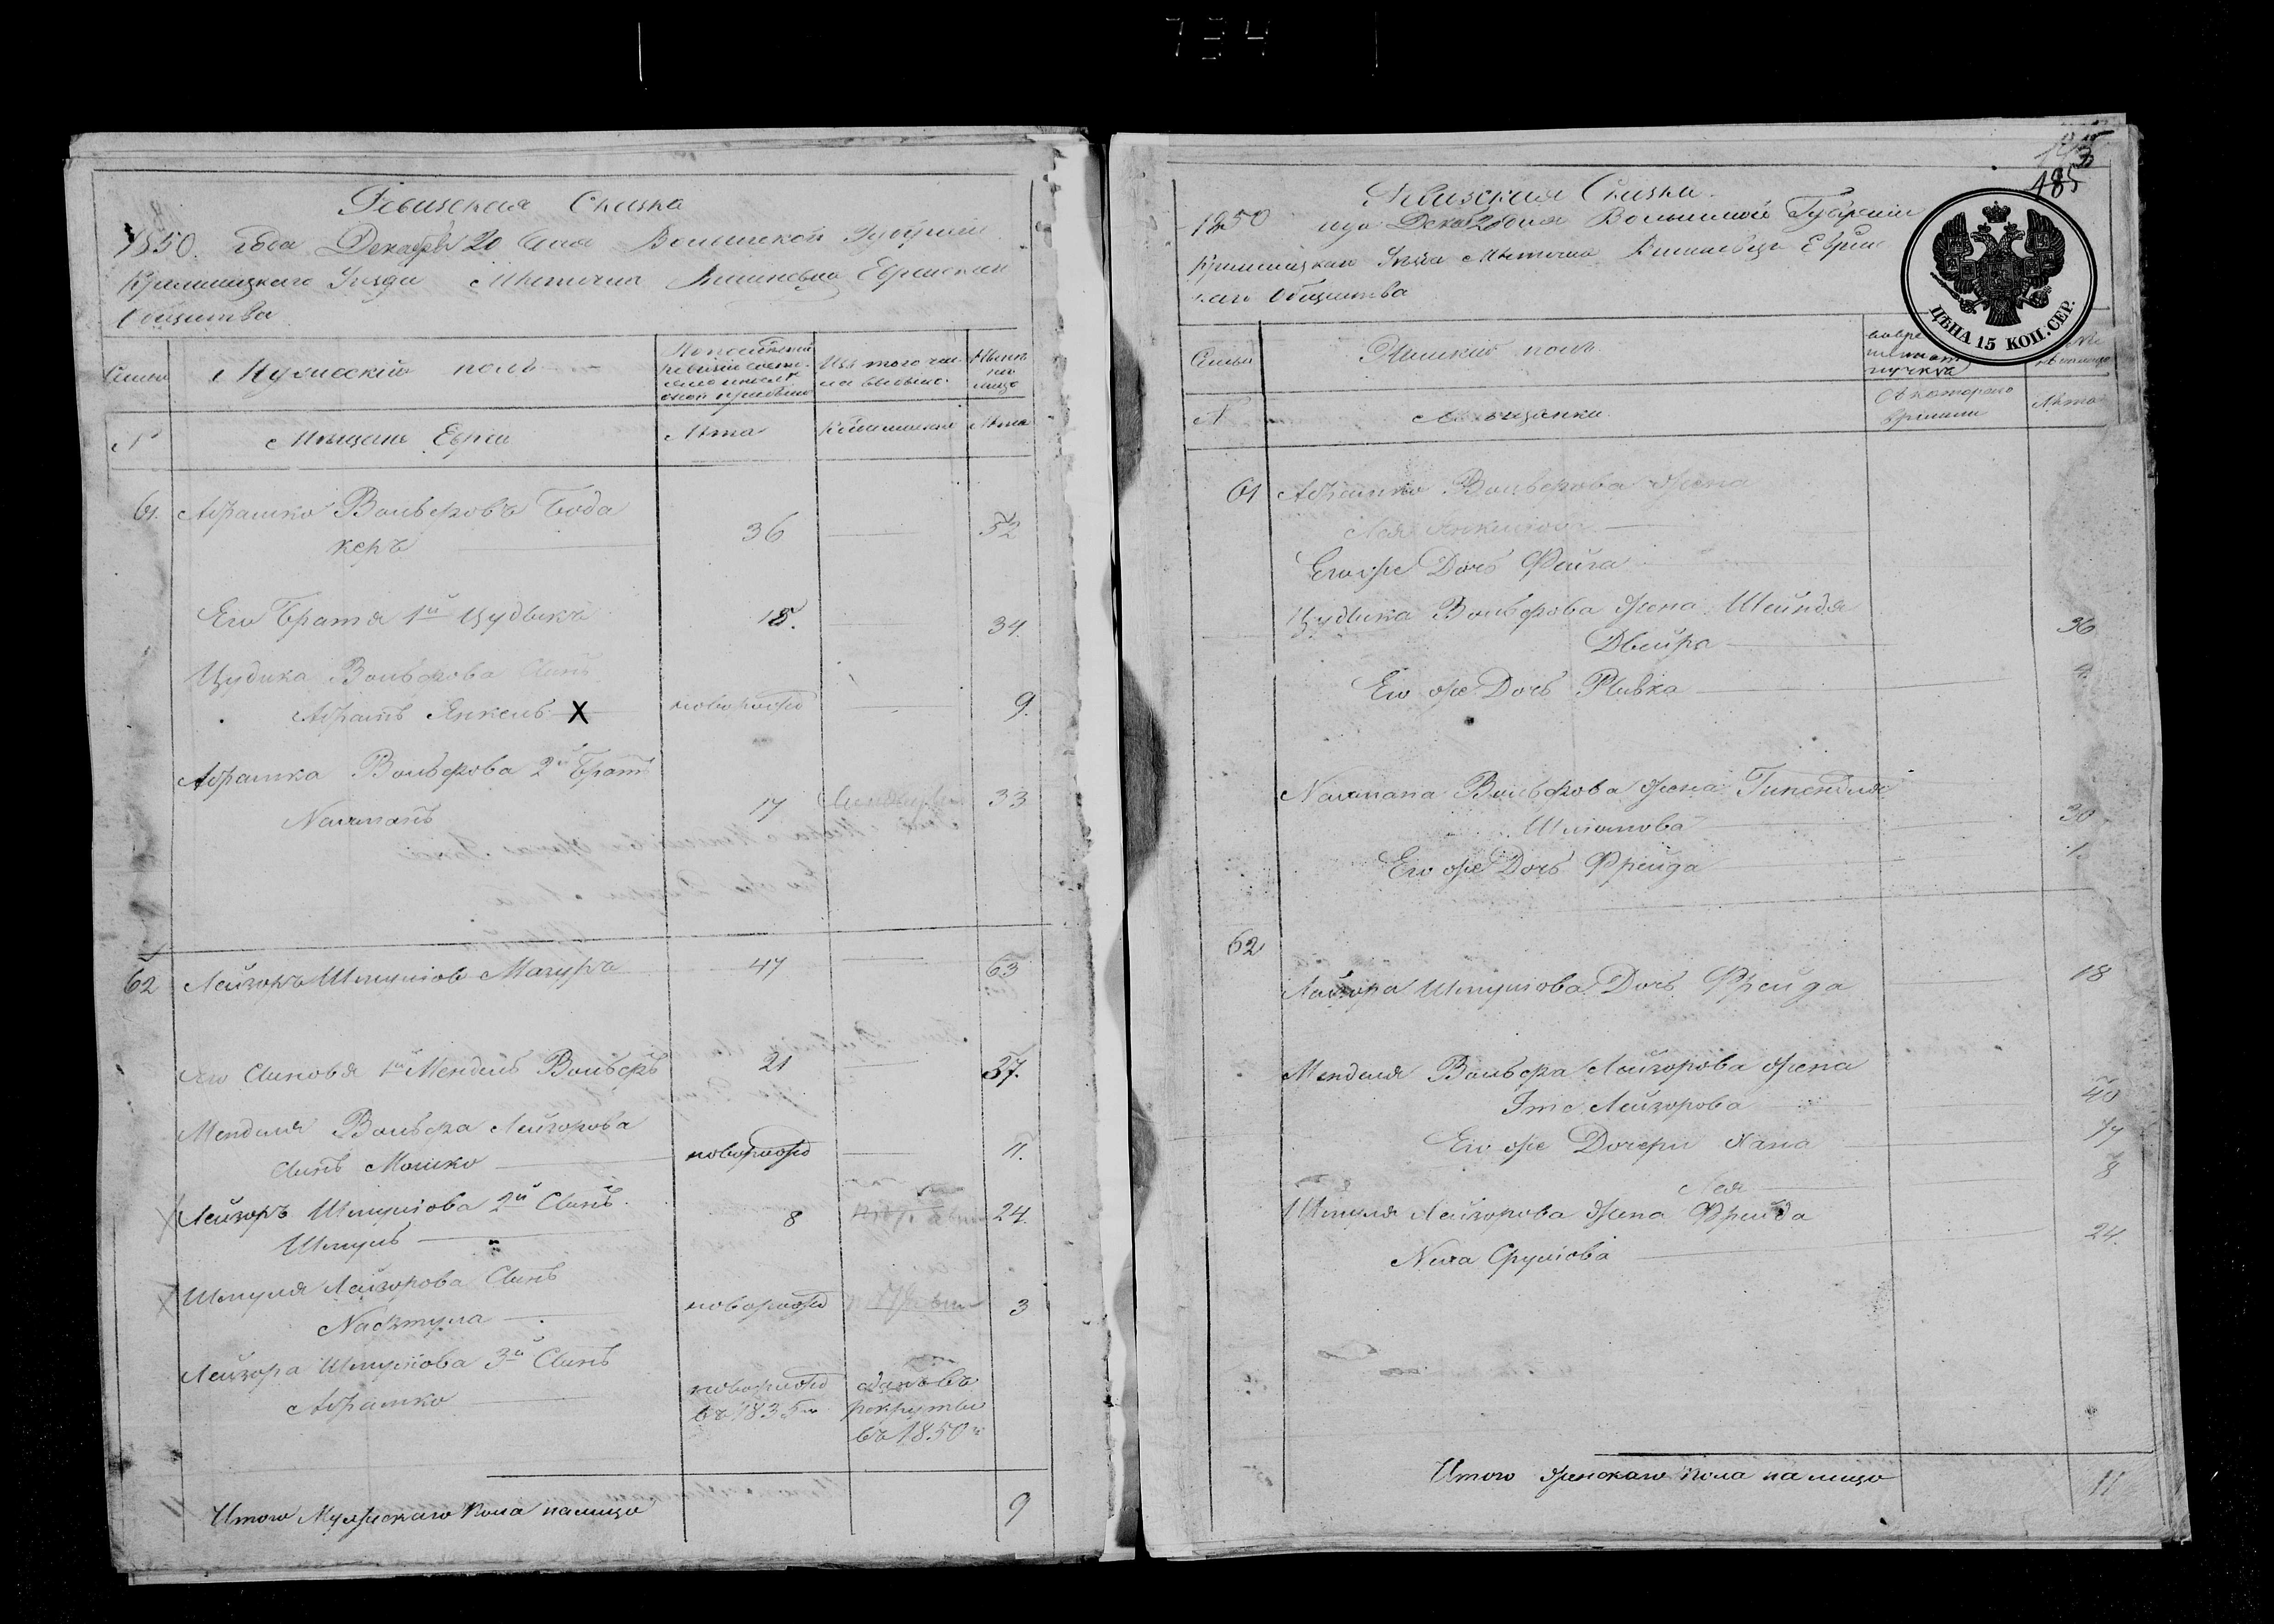 734
Ревизская Сказка
1850. года Декабря 20 дня Волынской Губернии
Кременецкого Уезда Местечка Вишневца Еврейскаго
Общества
Семьи
Мужеский полъ
По последней ревизии состояло и после оной прибыло
Изъ того числа выбыло
Ныне на лицо
№
Мещане Евреи
Лета
Когда именно
Лета
61. Абрамко Вольфовъ Бода
керъ 36 52
Его Братья 1й Цудыкъ 18. 34.
Цудика Вольфова Сынъ
Абрамъ Янкель X новорожд 9.
Абрамка Вольфова 2й Братъ
Нахманъ 17 33
62 Лейзоръ Шмулiовъ Магуръ 47 63
Его Сыновья 1й Мендель Вольфъ 21 37.
Менделя Вольфа Лейзорова
Сынъ Мошко новорожд 11.
Лейзоръ Шмулiова 2й Сынъ
Шмуль 8 24.
Шмуля Лейзорова Сынъ
новорожд 3
Лейзора Шмулiова 3й Сынъ
Абрамко
новорожд
въ 1835м
сданъ въ
рекруты
въ 1850м
Итого Мужескаго Пола налицо 9
185
Ревизская Сказка
1850 года Декаб 20 дня Волынской Губернии
Кременецкаго Уезда Местечка Вишневца Еврейс
каго Общества
ЦѢНА 15 КОП. СЕР.
Семьи
Женский полъ
№
Мещанки
Съ котораго
времени
Лета
61 Абрамко Вольфова жена
Лея Янкелiова
Его же Дочь Файга
Цудика Вольфова жена Шейндля
Двейра 36
Его же Дочь Ривка
Нахмана Вольфова жена Гинендля
Шлiомова 30
Его же Дочь Фрейда 1.
62
Лейзора Шмулiова Дочь Фрейда 18
Менделя Вольфа Лейзорова жена
Лейзорова 40
Его же Дочери Хана 17
Лея 8
Шмуля Лейзорова жена Фрейда
Неха Срулiова 24.
Итого женскаго пола на лицо 11